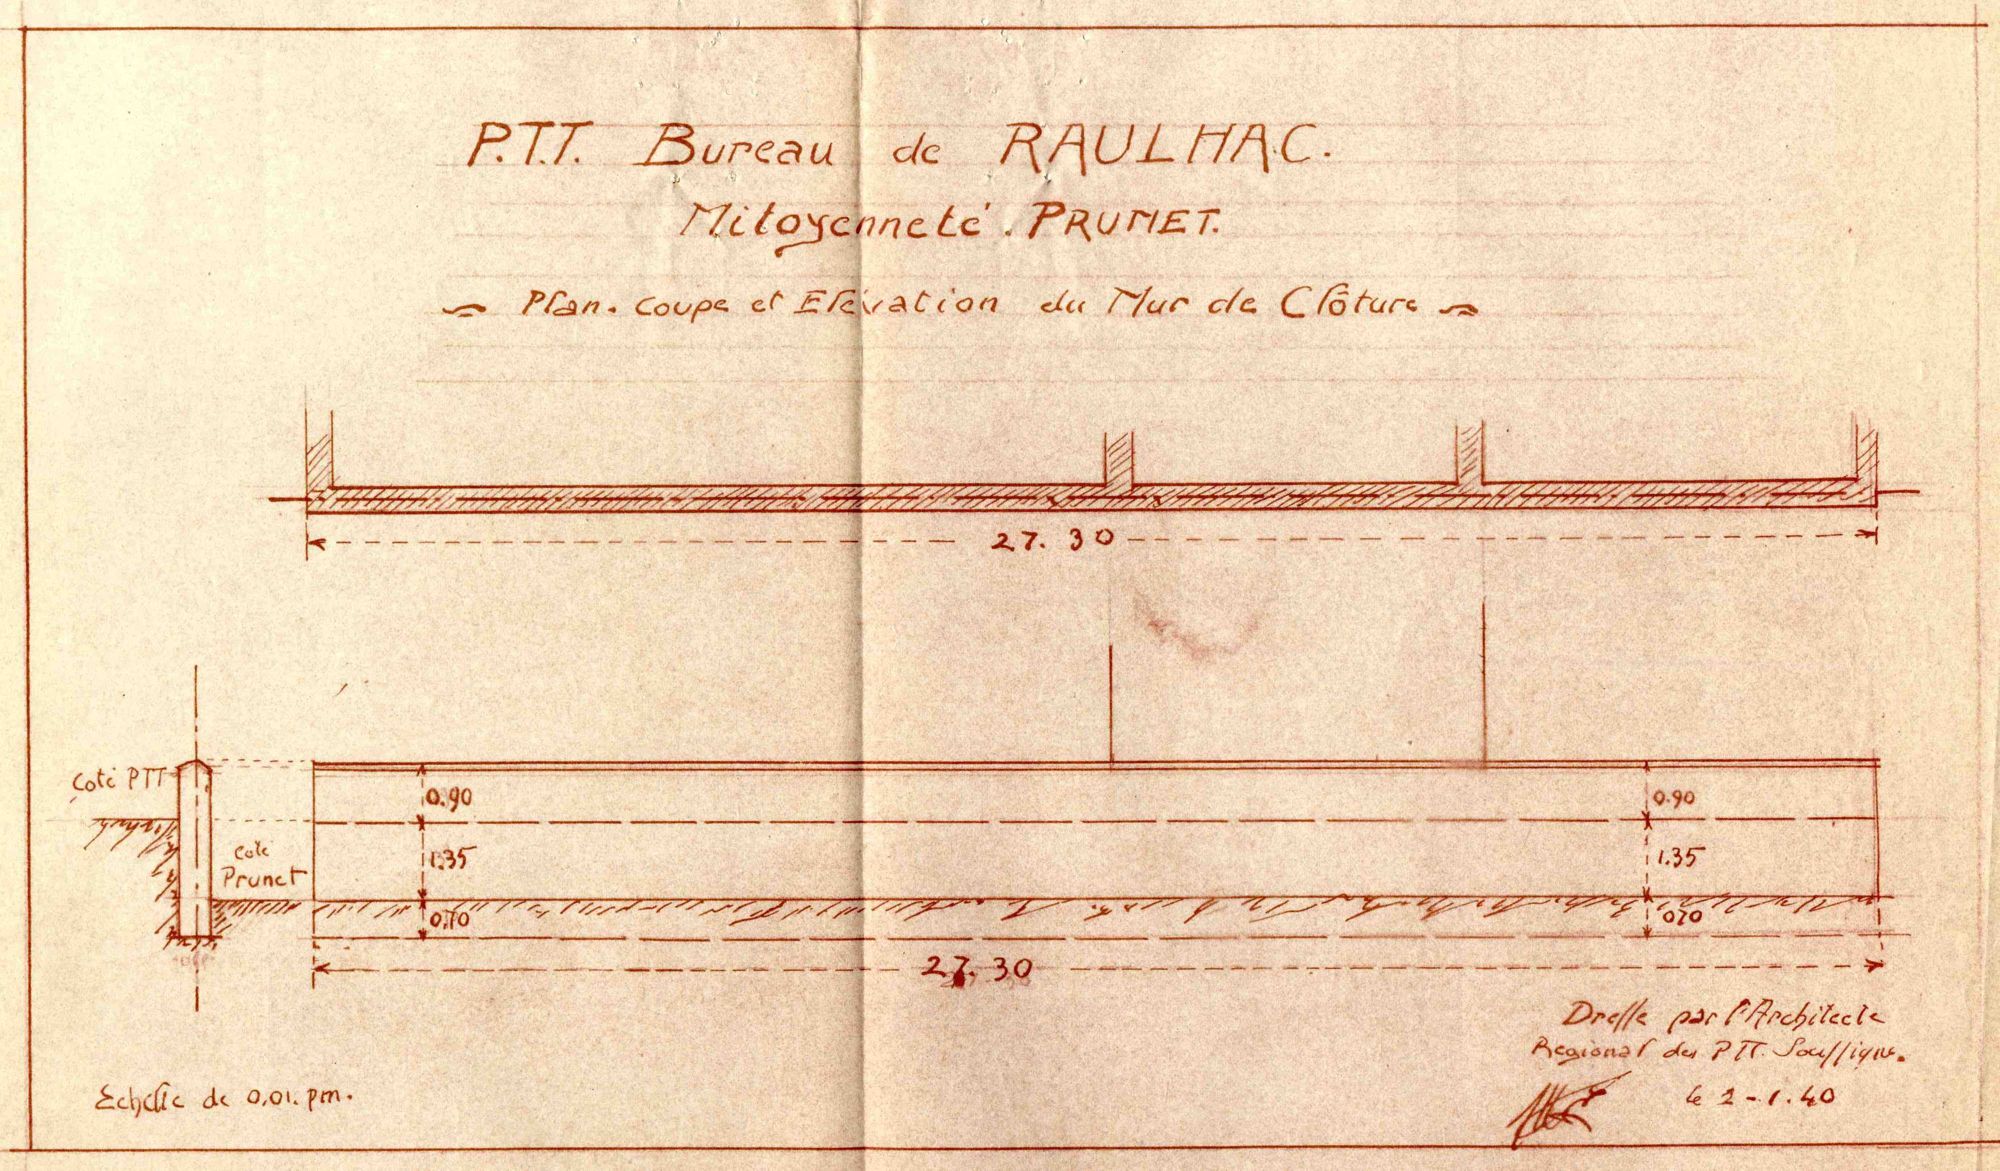 P.T.T. Bureau de RAULHAC.
Mitoyenneté. PRUNET.
Plan. Coupe et Elévation du Mur de Clôture
27.30
Coté PTT
coté
Prunet
0.90
1.35
0.70
0.90
1.35
0.70
27.30
Dressé par l'Architecte
Regional des PTT. Soussigné.
le 2-1.40
Echelle de 0.01. pm.